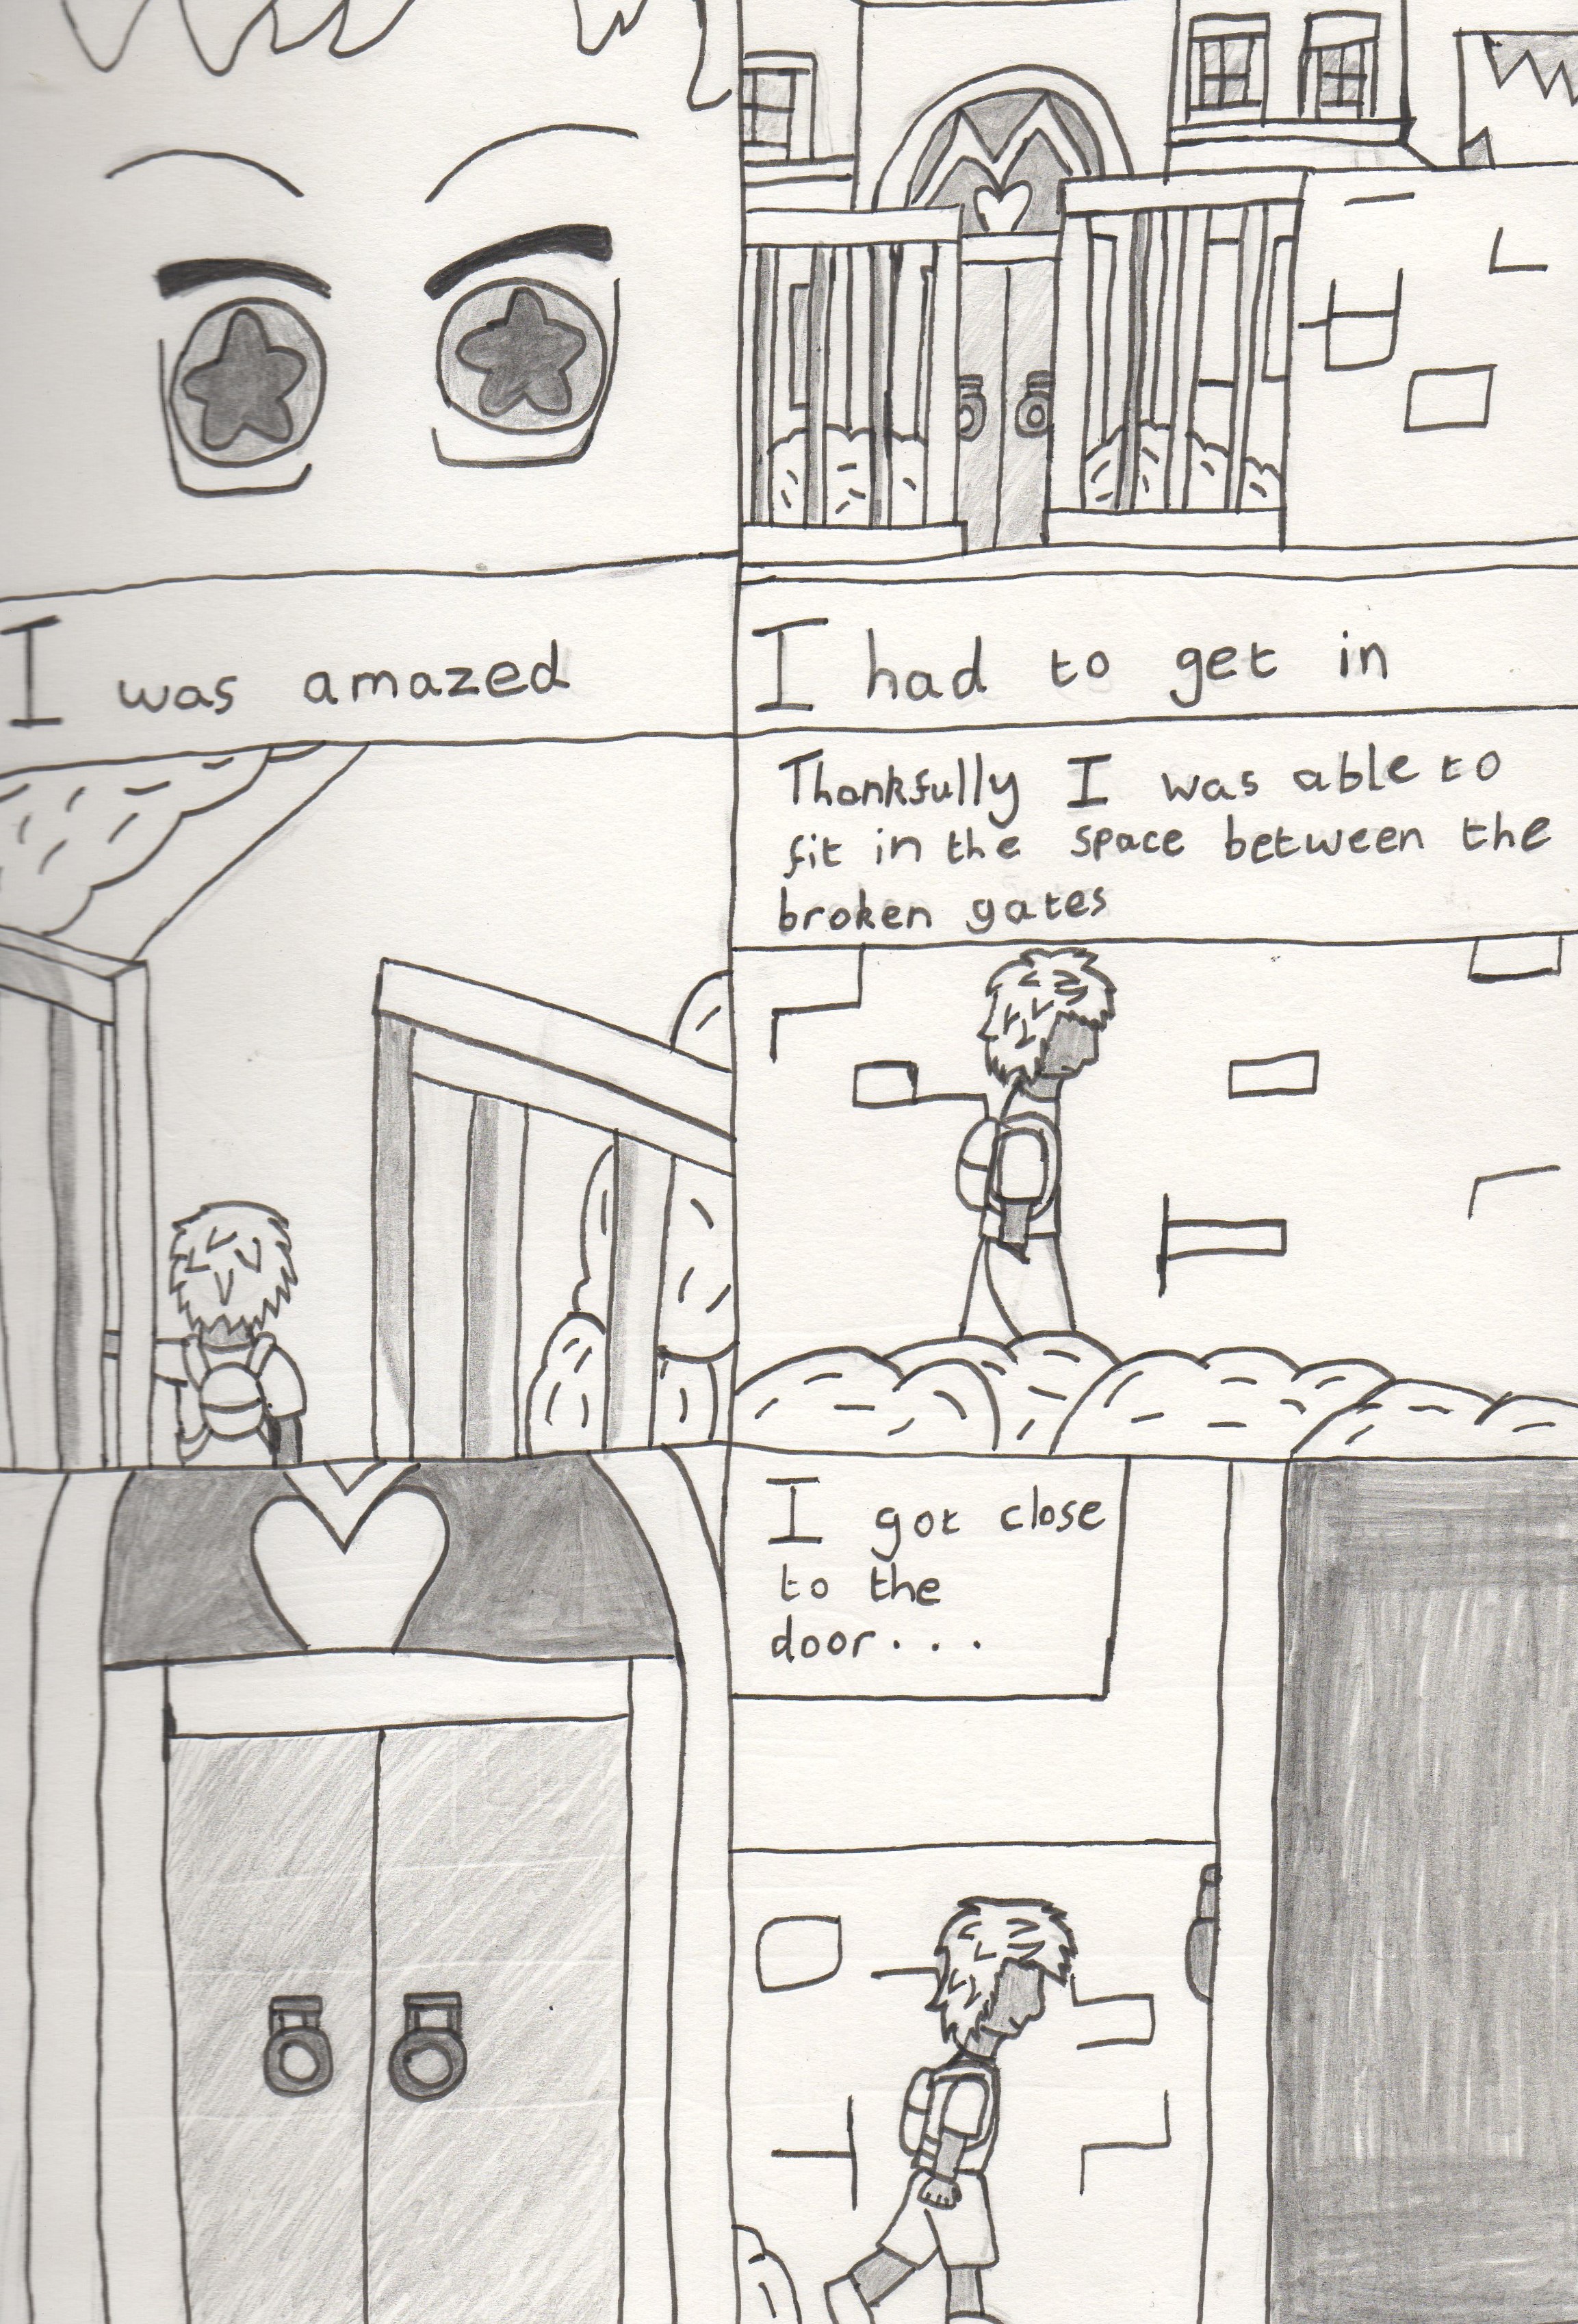 I was amazed
I had to get in
Thankfully I was able to
fit in the space between the
broken gates
I got close
to the
door...